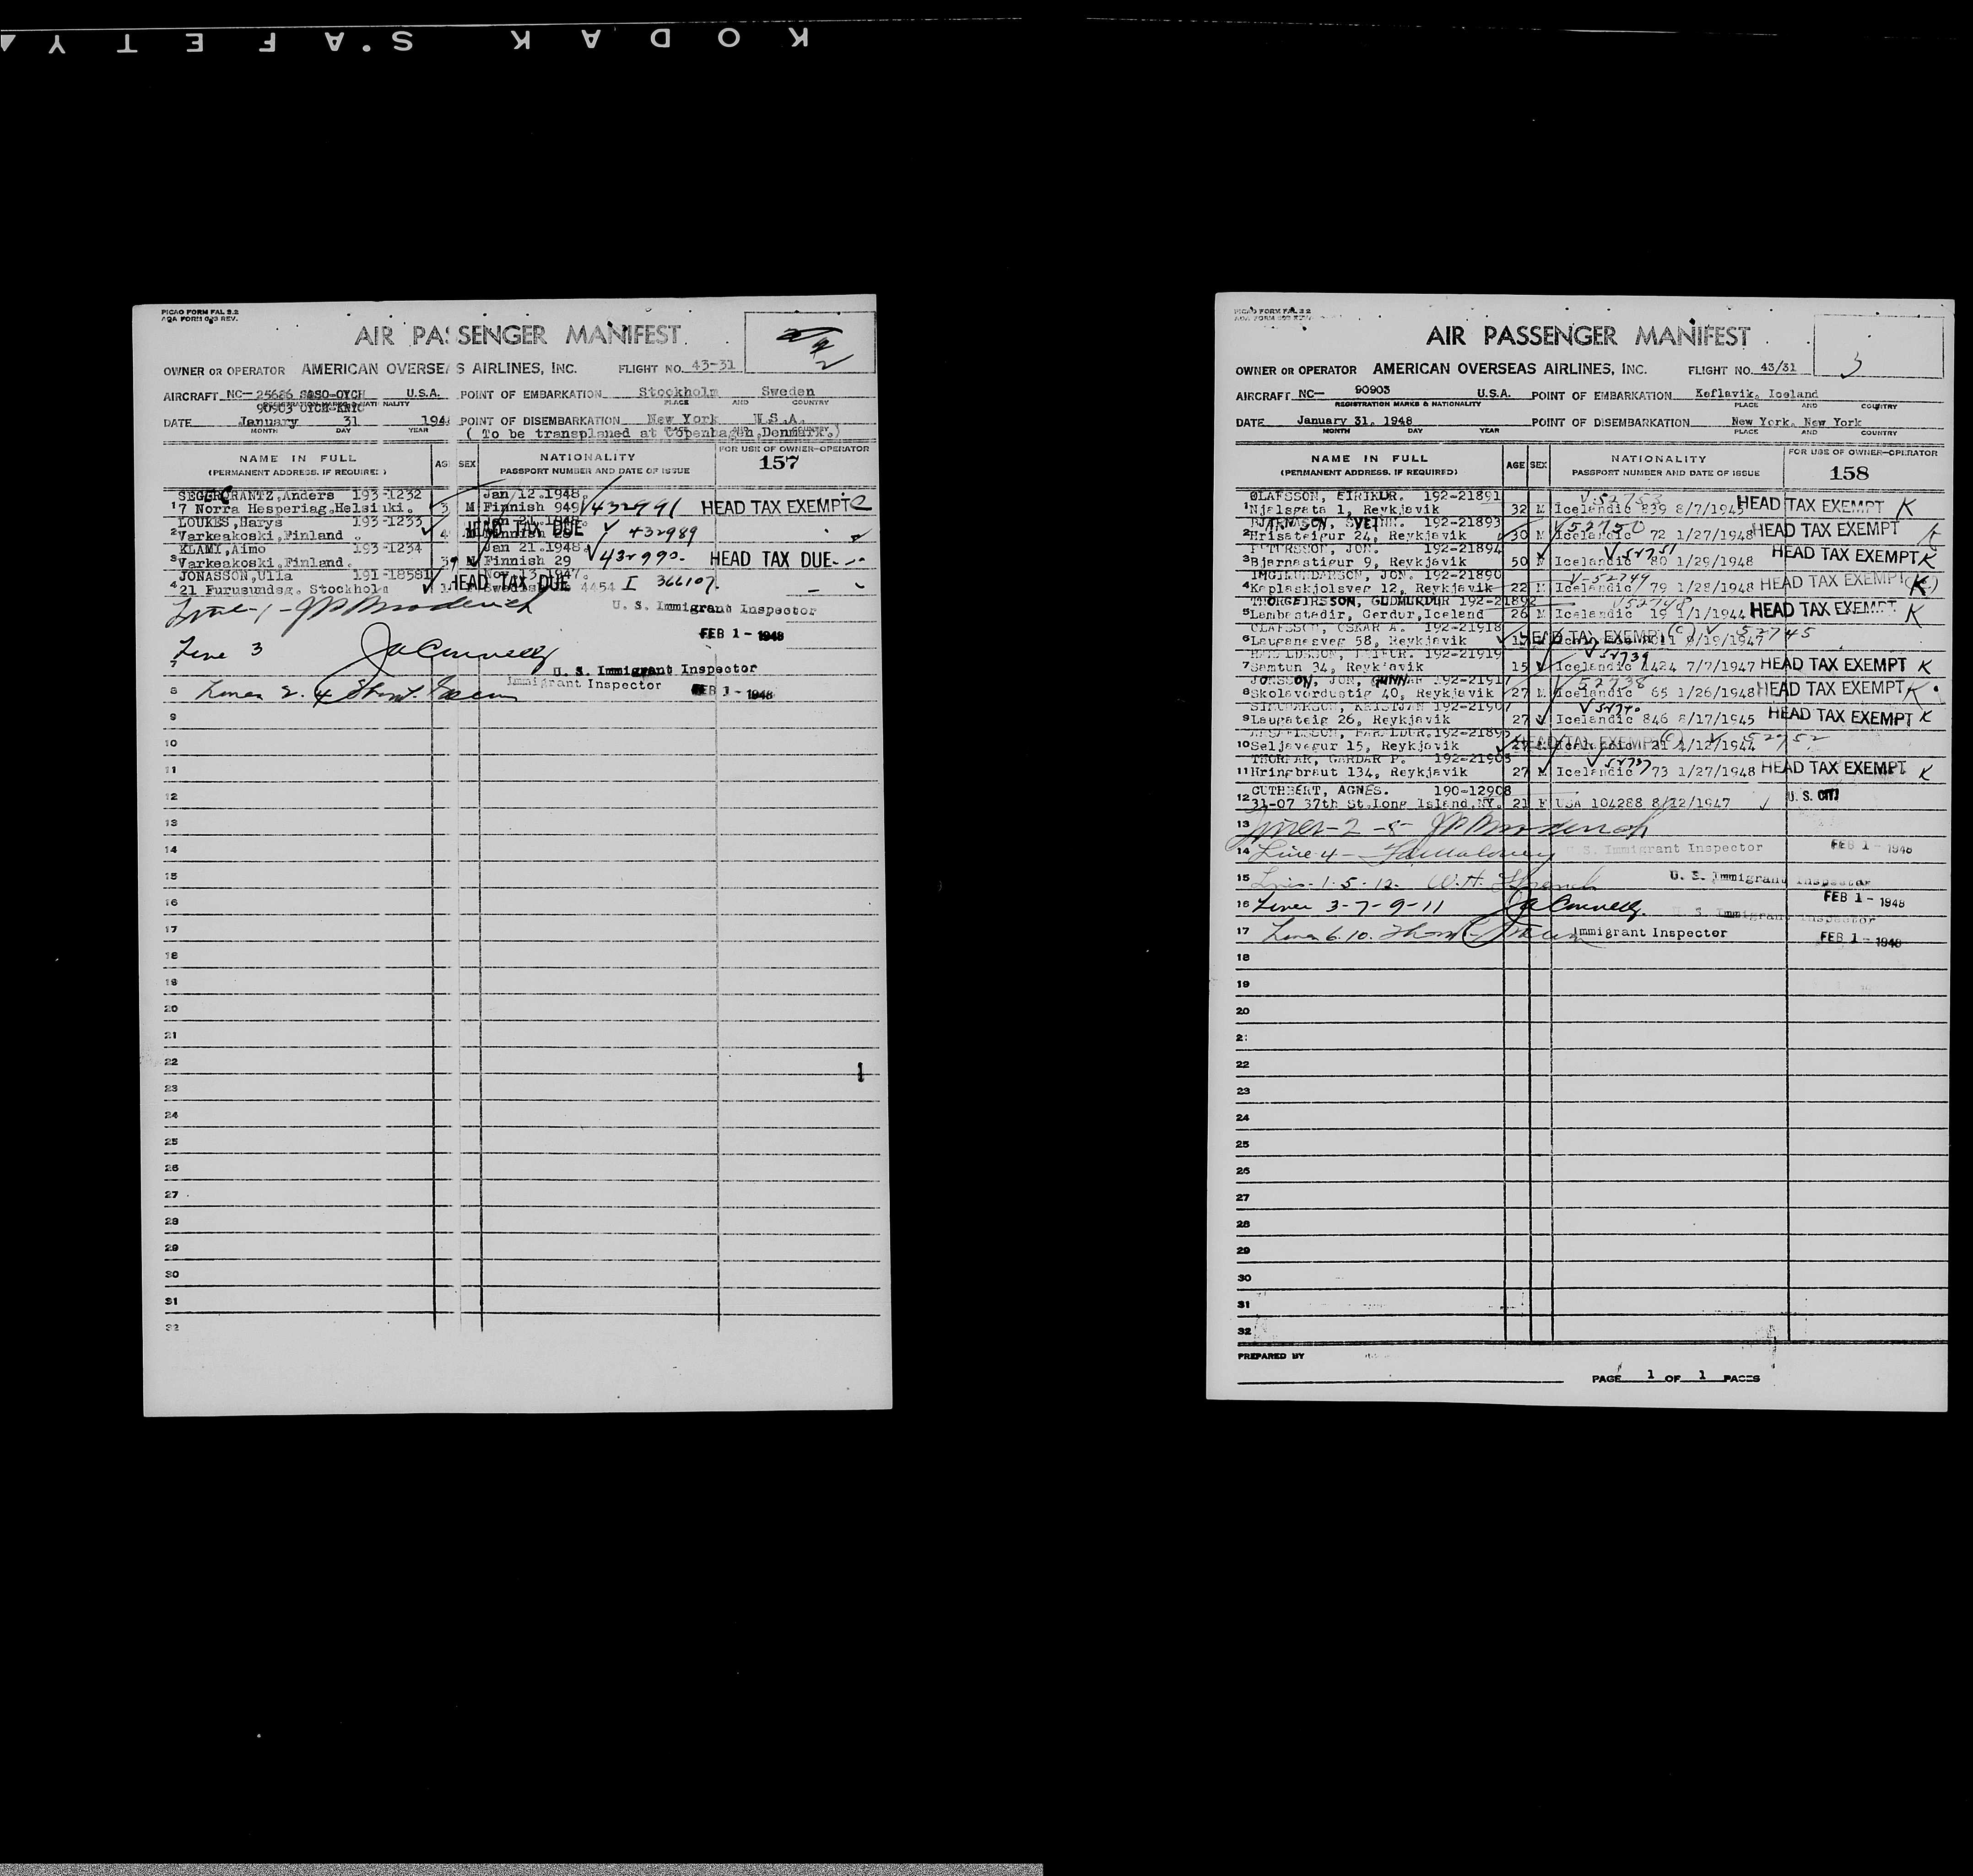 KODAK SAFETY
PICAO FORM FAL 2.2
AOA FORM 093 REV.
AIR PASSENGER MANIFEST
OWNER OR OPERATOR AMERICAN OVERSEAS AIRLINES, INC. FLIGHT NO. 43-31
AIRCRAFT NC- 25686 U.S.A. POINT OF EMBARKATION Stockholm Sweden
90903 OYCH-KNYC PLACE AND COUNTRY
DATE January 31 194 POINT OF DISEMBARKATION New York U.S.A.
MONTH DAY YEAR ( To be transplaned at Copenhagen, Denmark.)
NAME IN FULL AGE SEX NATIONALITY FOR USE OF OWNER-OPERATOR
(PERMANENT ADDRESS, IF REQUIRED) PASSPORT NUMBER AND DATE OF ISSUE 157
Anders 193-1232 Jan 12.1948.
1 7 Norra Hesperiag.Helsinki. M Finnish 949 V432991 HEAD TAX EXEMPT C
LOUKES, Harys 193-1233
2 Varkeakoski, Finland HEAD TAX DUE V 432989
KLAMI, Aimo 193-1234 Jan 21.1948.
3 Varkeakoski, Finland. 39 M Finnish 29 V432990 HEAD TAX DUE
JONASSON, Ulla 191-18581 Nov. 13 1947.
4 21 Furusundsg. Stockholm HEAD TAX DUE 4454 I 366107
Line-1- JP Broderick U. S. Immigrant Inspector
FEB 1 - 1948
Line 3 JA Connelly
U. S. Immigrant Inspector
8 Lines 2. 4 Immigrant Inspector FEB 1 - 1948
9
10
11
12
13
14
15
16
17
18
19
20
21
22
23
24
25
26
27
28
29
30
31
32
PICAO FORM FAL 2.2
AIR PASSENGER MANIFEST
3
OWNER OR OPERATOR AMERICAN OVERSEAS AIRLINES, INC. FLIGHT NO. 43/31
AIRCRAFT NC- 90903 U.S.A. POINT OF EMBARKATION Keflavik, Iceland
REGISTRATION MARKS & NATIONALITY PLACE AND COUNTRY
DATE January 31, 1948 POINT OF DISEMBARKATION New York, New York
MONTH DAY YEAR PLACE AND COUNTRY
NAME IN FULL AGE SEX NATIONALITY FOR USE OF OWNER-OPERATOR
(PERMANENT ADDRESS, IF REQUIRED) PASSPORT NUMBER AND DATE OF ISSUE 158
OLAFSSON, EIRIKUR. 192-21891 V52753
1 Njalsgata 1, Reykjavik 32 M Icelandic 839 8/7/194 HEAD TAX EXEMPT K
BJARNASON, SVEINN. 192-21893 V52750
2 Hrisateigur 24, Reykjavik 30 M Icelandic 72 1/27/1948 HEAD TAX EXEMPT K
PETURSSON, JON. 192-21894 V52751
3 Bjarnastigur 9, Reykjavik 50 M Icelandic 80 1/29/1948 HEAD TAX EXEMPT K
INGIMUNDARSON, JON. 192-21890 V-52749
4 Kaplaskjolsveg 12, Reykjavik 22 M Icelandic 79 1/28/1948 HEAD TAX EXEMPT (K)
THORGEIRSSON, GUDMUNDUR 192-21892 V52748
5 Lambastadir, Gerdur, Iceland 26 M Icelandic 19 1/1/1944 HEAD TAX EXEMPT K
OLAFSSON, OSKAR A. 192-21918
6 Lauganesveg 58, Reykjavik HEAD TAX EXEMPT (C) V 52745 9/19/1947
192-21919 V52739
7 Samtun 34, Reykjavik 15 Icelandic 1424 7/7/1947 HEAD TAX EXEMPT K
JONSSON, JON, GUNNAR 192-21917 V52738
8 Skolavordustig 40, Reykjavik 27 M Icelandic 65 1/26/1948 HEAD TAX EXEMPT K
KRISTJAN 192-21907 V52740
9 Laugateig 26, Reykjavik 27 Icelandic 846 8/17/1945 HEAD TAX EXEMPT K
HARALDUR. 192-21895
10 Seljavegur 15, Reykjavik 27 HEAD TAX EXEMPT (C) V 52752 21 4/12/1944
THORFAR, GARDAR P. 192-21903 V52737
11 Hringbraut 134, Reykjavik 27 M Icelandic 73 1/27/1948 HEAD TAX EXEMPT K
CUTHBERT, AGNES. 190-12908
12 31-07 37th St.Long Island, NY. 21 F USA 104288 8/12/1947 U.S. CIT
13 Lines-2-8- JP Broderick
14 Line 4 - U. S. Immigrant Inspector FEB 1 - 1948
15 Lines-1-5-12. W.H. U. S. Immigrant Inspector
16 Lines 3-7-9-11 JA Connelly. U. S. Immigrant Inspector FEB 1 - 1948
17 Lines 6.10. Immigrant Inspector FEB 1 - 1948
18
19
20
21
22
23
24
25
26
27
28
29
30
31
32
PREPARED BY
PAGE 1 OF 1 PAGES